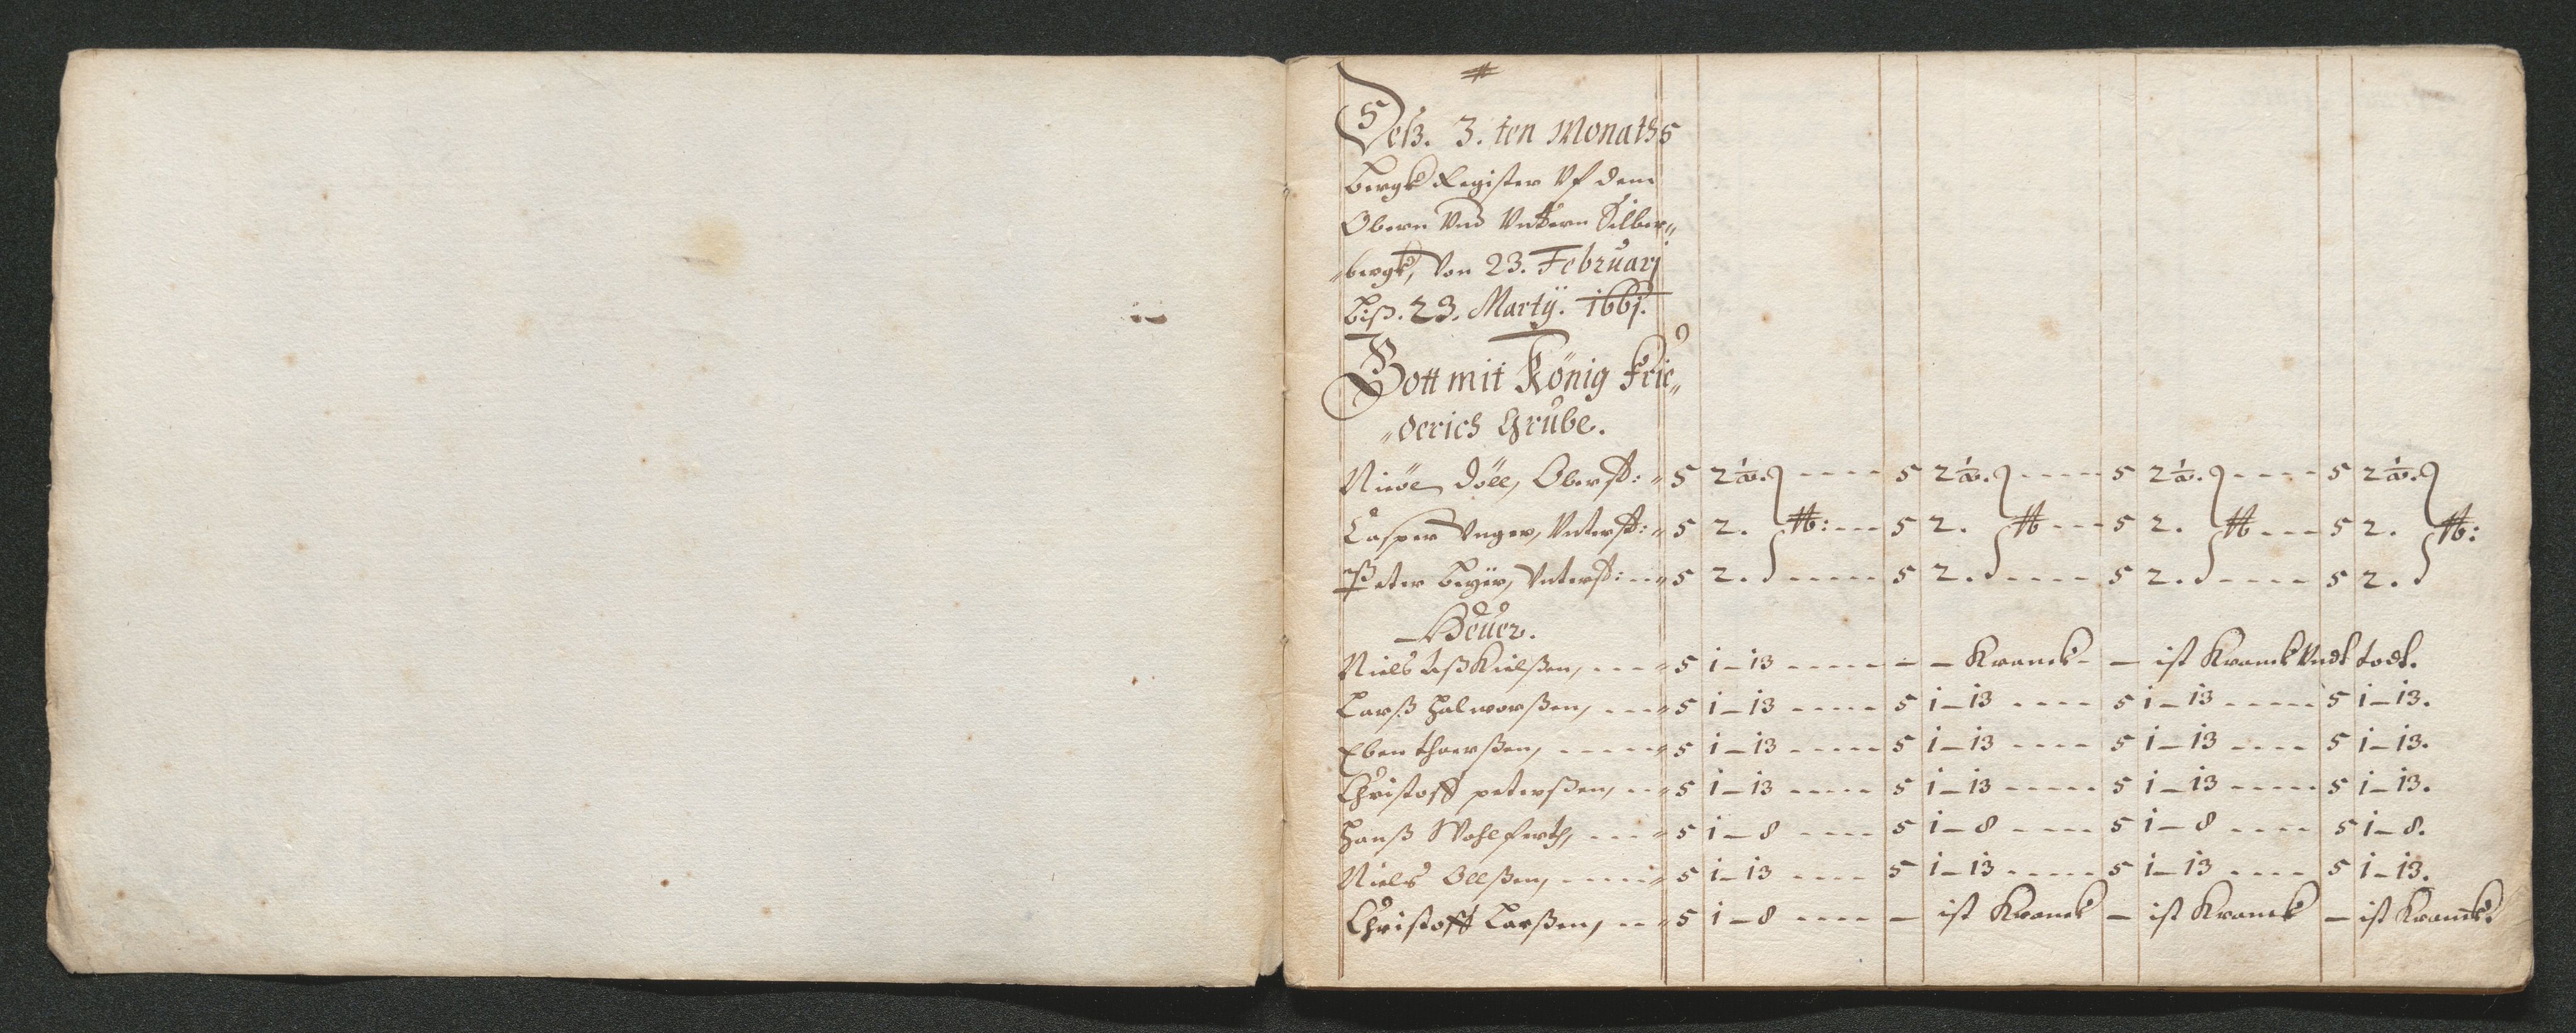 Deß. 3. ten Monaths
Bergk Register Uf dem
Obern Und Untern Silber„
„bergk, Von 23. Februarj
Biß. 23. Martÿ. 1661.
Gott mit König Frie„
„derich Grube.
Nicöl Döll, Oberst: 5 2½. 5 2½. 5 2½. 5 2½.
Casper Unger, Unterst: 5 2. 5 2. 5 2. 5 2.
Peter Beÿer, Unterst: 5 2. 5 2. 5 2. 5 2.
Heuer.
Niels Aßkielßen, 5 1–13 – Kranck – ist Kranck Undt todt.
Larß Halworßen, 5 1–13 5 1–13 5 1–13 5 1–13.
Eben thorßen, 5 1–13 5 1–13 5 1–13 5 1–13.
Christoff peterßen, 5 1–13 5 1–13 5 1–13 5 1–13.
Hanß Wohlferth, 5 1–8 5 1–8 5 1–8 5 1–8.
Niels Olßen, 5 1–13 5 1–13 5 1–13 5 1–13.
Christoff Larßen, 5 1–8 – ist Kranck – ist Kranck – ist Kranck.